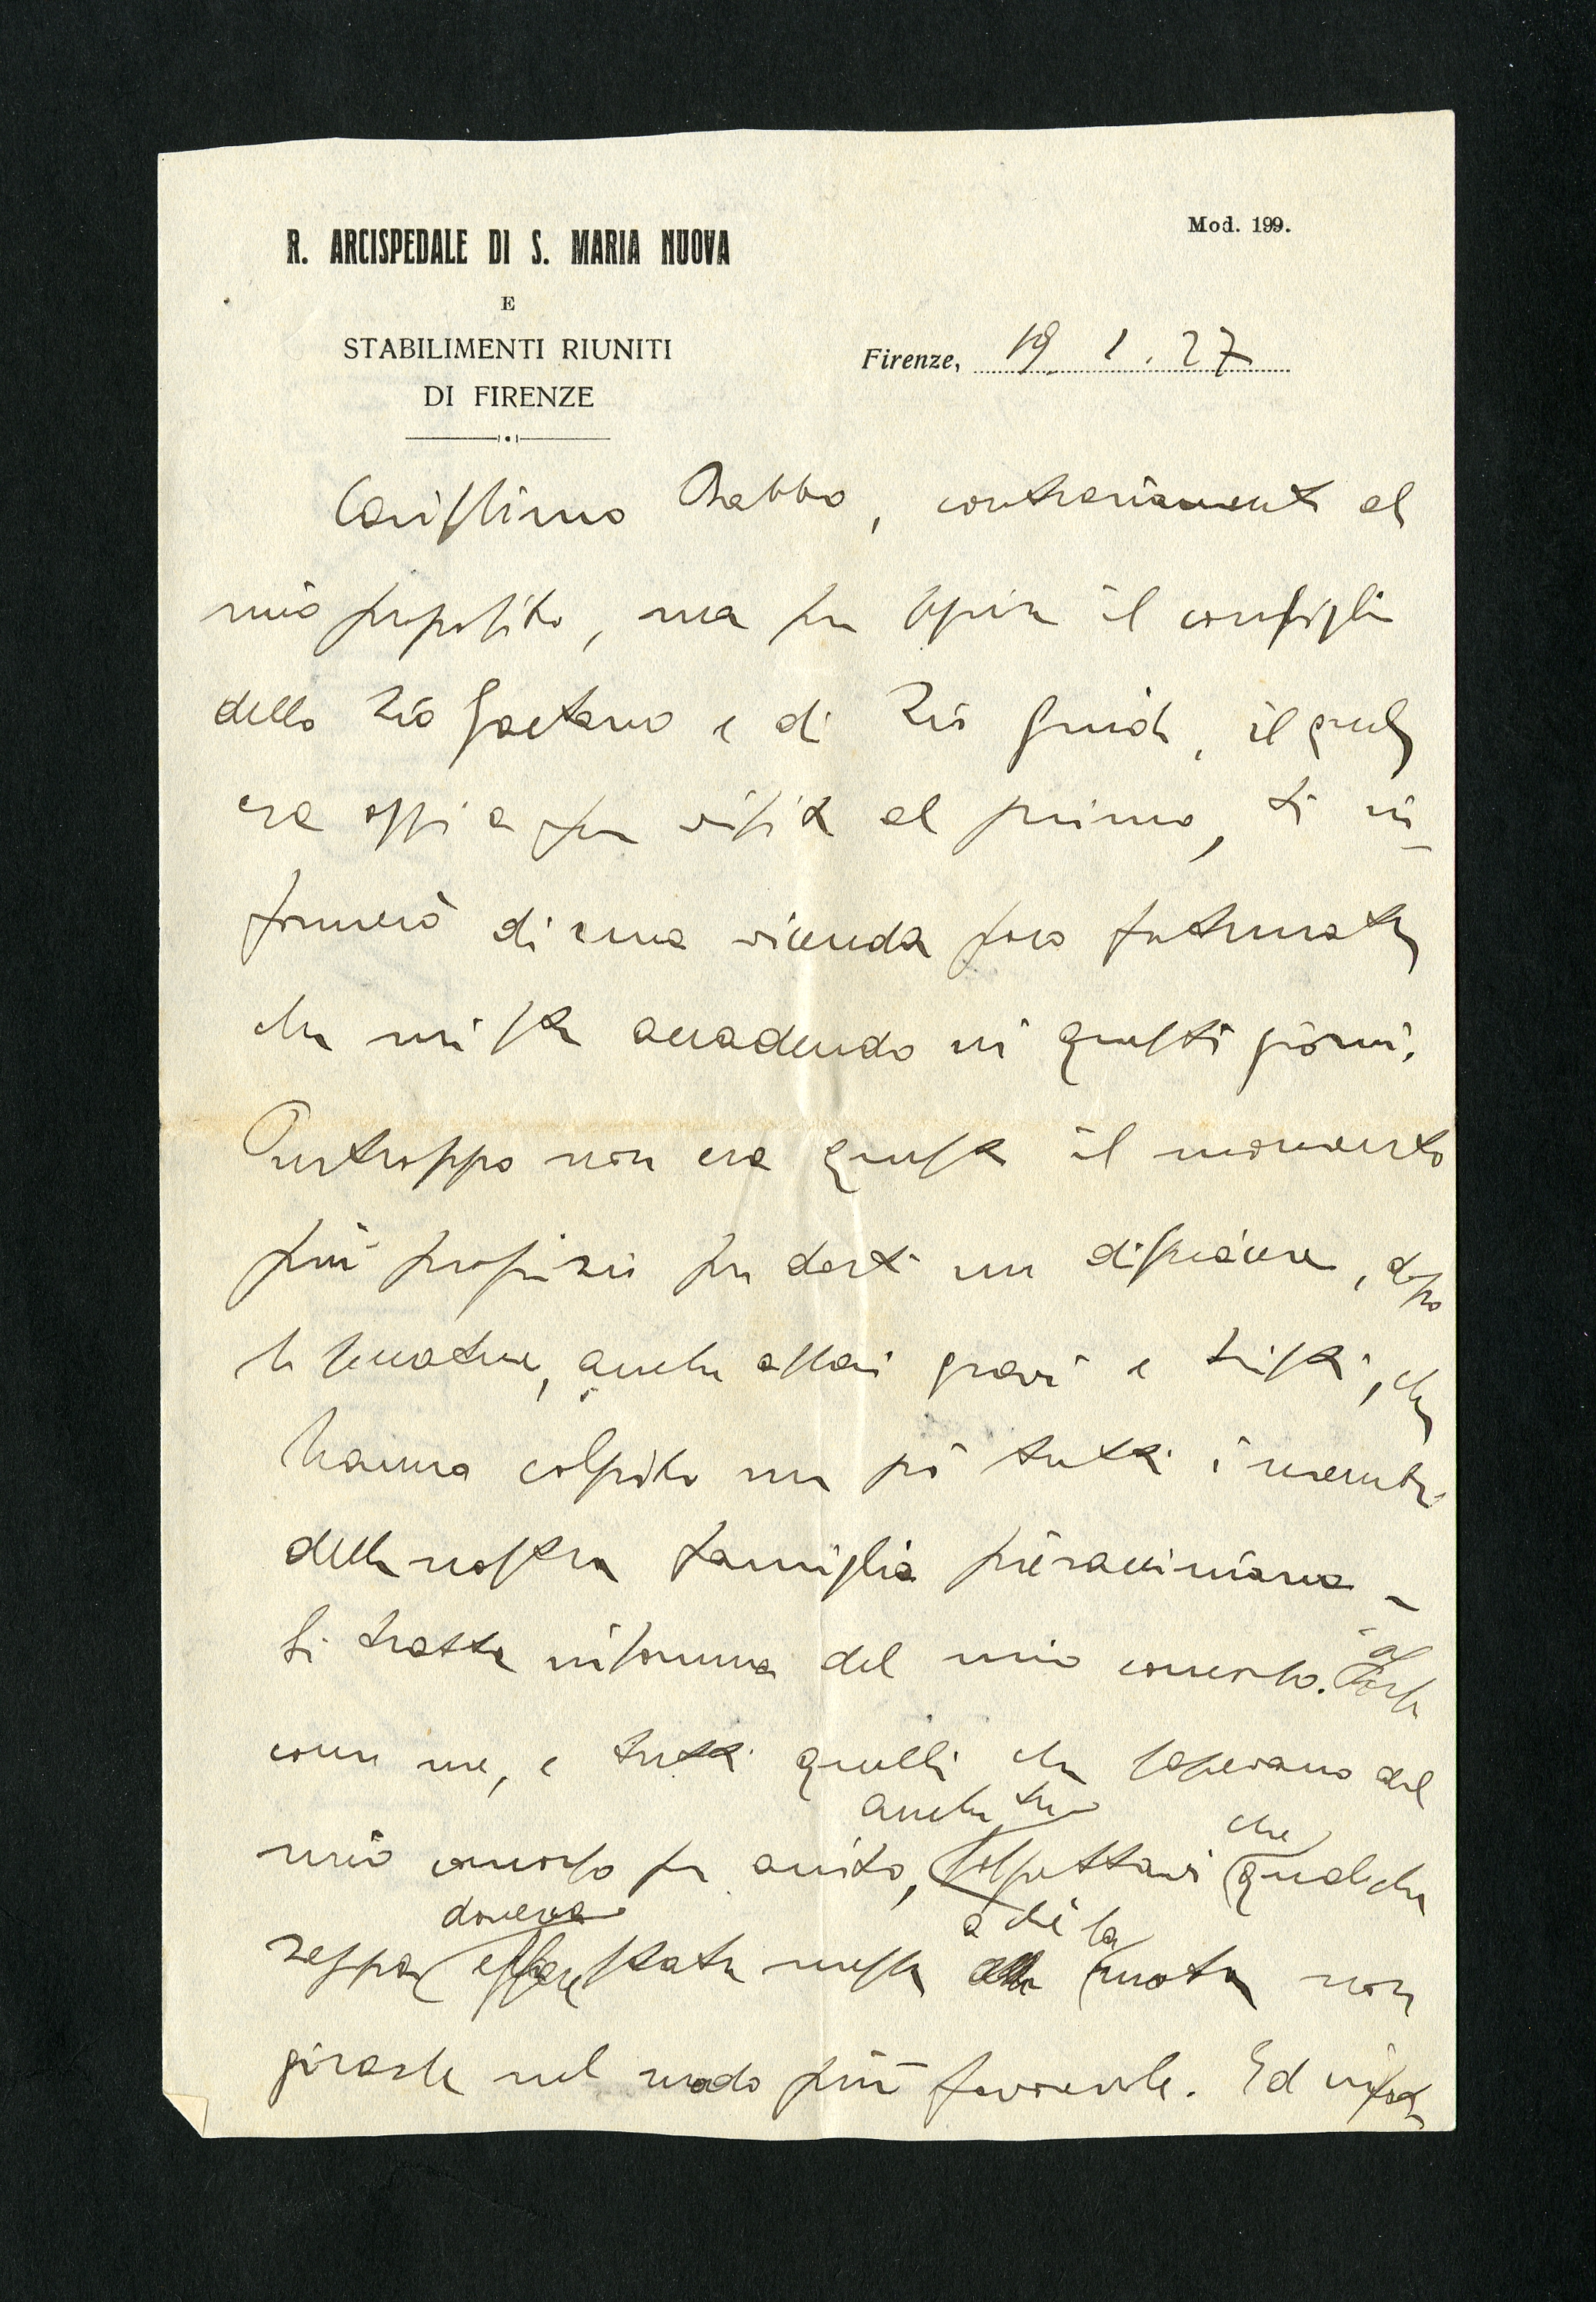 R. ARCISPEDALE DI S. MARIA NUOVA
E
STABILIMENTI RIUNITI
DI FIRENZE
Mod. 199.
Firenze, 19. 1. 27
Carissimo Babbo, contrariamente al
mio proposito, ma per seguire il consiglio
dello zio Gaetano e di zio Guido, il quale
era oggi a far visita al primo, ti in-
formerò di una vicenda poco fortunata
che mi sta accadendo in questi giorni.
Purtroppo non era questo il momento
più propizio per darti un dispiacere, dopo
le seccature, anche assai gravi e tristi, che
hanno colpito un po' tutti i membri
della nostra famiglia pieracciniana -
Si tratta insomma del mio concorso. Forse
come me, e tutti quelli che sapevano del
anche tu che
mio concorso fu avuto, sospettavi qualche
doveva a che la
zeppa essere stata messa alla ruota non
girasse nel modo più favorevole. Ed infatti